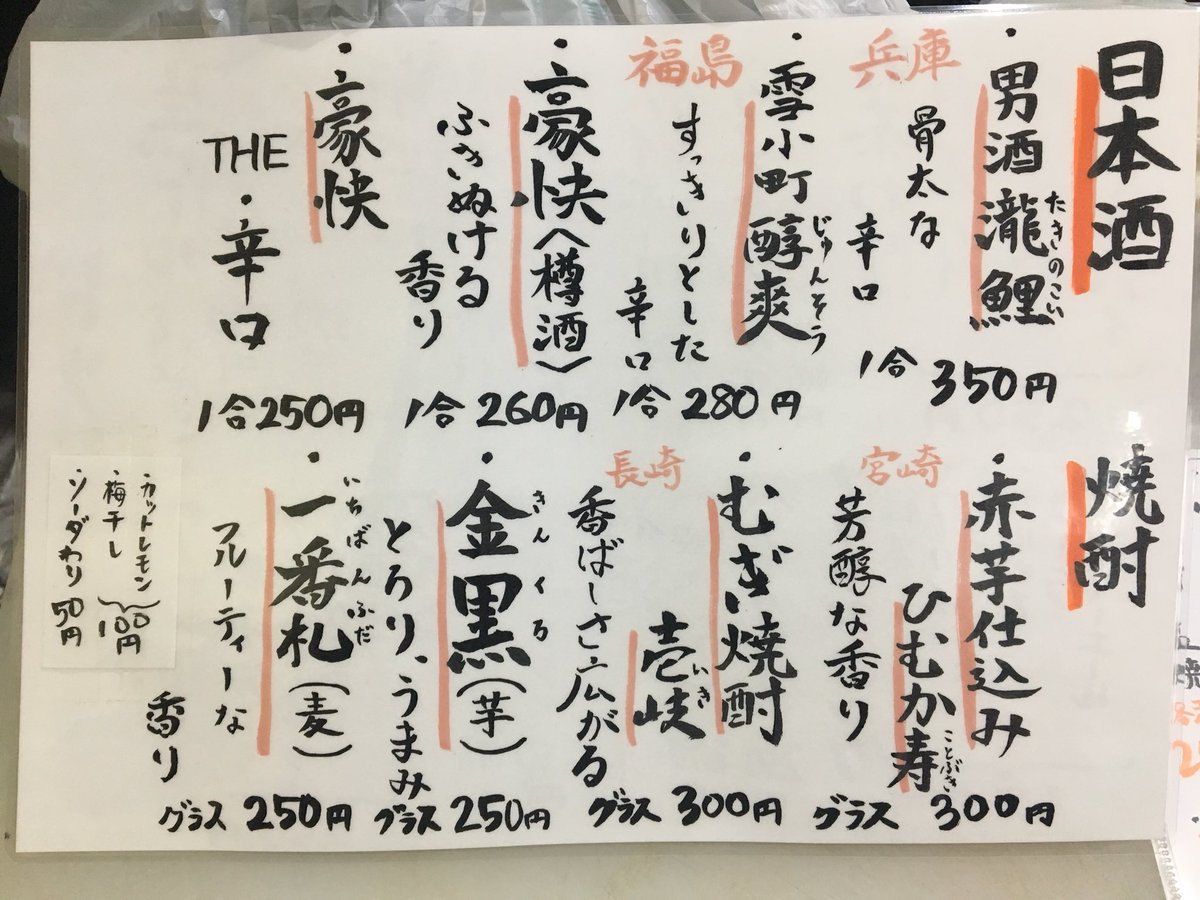 日本酒
・男酒 瀧鯉
たきのこい
兵庫
骨太な
辛口
1合 350円
・雪小町 醇爽
じゅんそう
福島
すっきりとした
辛口
1合 280円
・豪快〈樽酒〉
ふきぬける
香り
1合 260円
・豪快
THE・辛口
1合 250円
焼酎
・赤芋仕込み
ひむか寿
ことぶき
宮崎
芳醇な香り
グラス 300円
・むぎ焼酎
壱岐
いき
長崎
香ばしさ広がる
グラス 300円
・金黒(芋)
きんくろ
とろり、うまみ
グラス 250円
・一番札(麦)
いちばんふだ
フルーティーな
香り
グラス 250円
・カットレモン
・梅干し
100円
・ソーダわり 50円